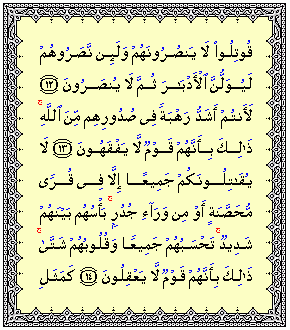 قُوتِلُوا۟ لَا يَنصُرُونَهُمْ وَلَئِن نَّصَرُوهُمْ
لَيُوَلُّنَّ ٱلْأَدْبَـٰرَ ثُمَّ لَا يُنصَرُونَ ﴿١٢﴾
لَأَنتُمْ أَشَدُّ رَهْبَةً فِى صُدُورِهِم مِّنَ ٱللَّهِ ۚ
ذَٰلِكَ بِأَنَّهُمْ قَوْمٌ لَّا يَفْقَهُونَ ﴿١٣﴾ لَا
يُقَـٰتِلُونَكُمْ جَمِيعًا إِلَّا فِى قُرًى
مُّحَصَّنَةٍ أَوْ مِن وَرَآءِ جُدُرٍۭ ۚ بَأْسُهُم بَيْنَهُمْ
شَدِيدٌ ۚ تَحْسَبُهُمْ جَمِيعًا وَقُلُوبُهُمْ شَتَّىٰ ۚ
ذَٰلِكَ بِأَنَّهُمْ قَوْمٌ لَّا يَعْقِلُونَ ﴿١٤﴾ كَمَثَلِ